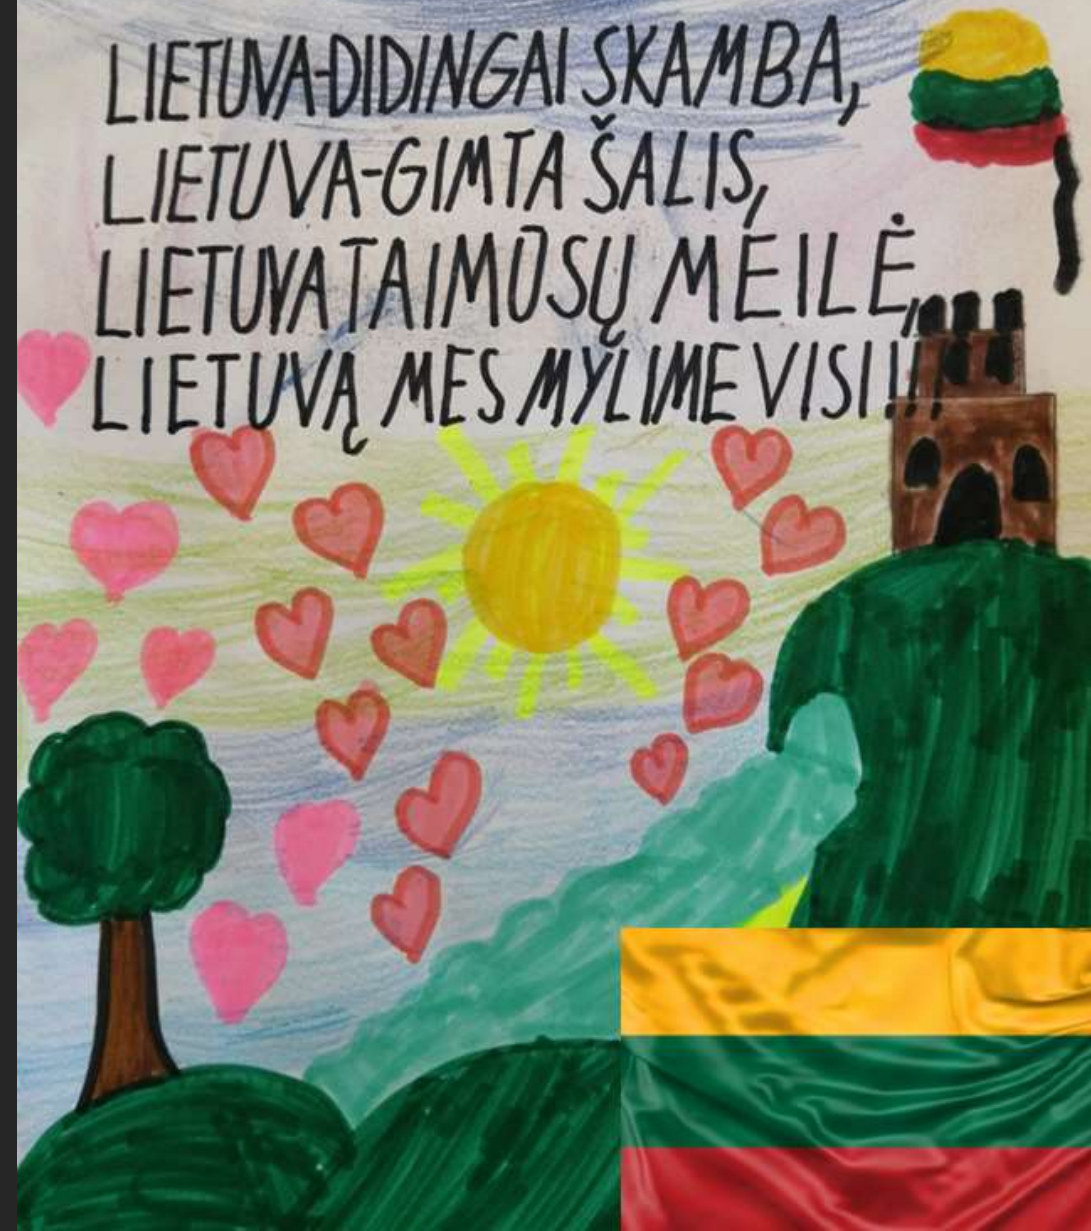 LIETUVA-DIDINGAI SKAMBA,
LIETUVA-GIMTA ŠALIS,
LIETUVA TAI MŪSŲ MEILĖ,
LIETUVĄ MES MYLIME VISI!!!